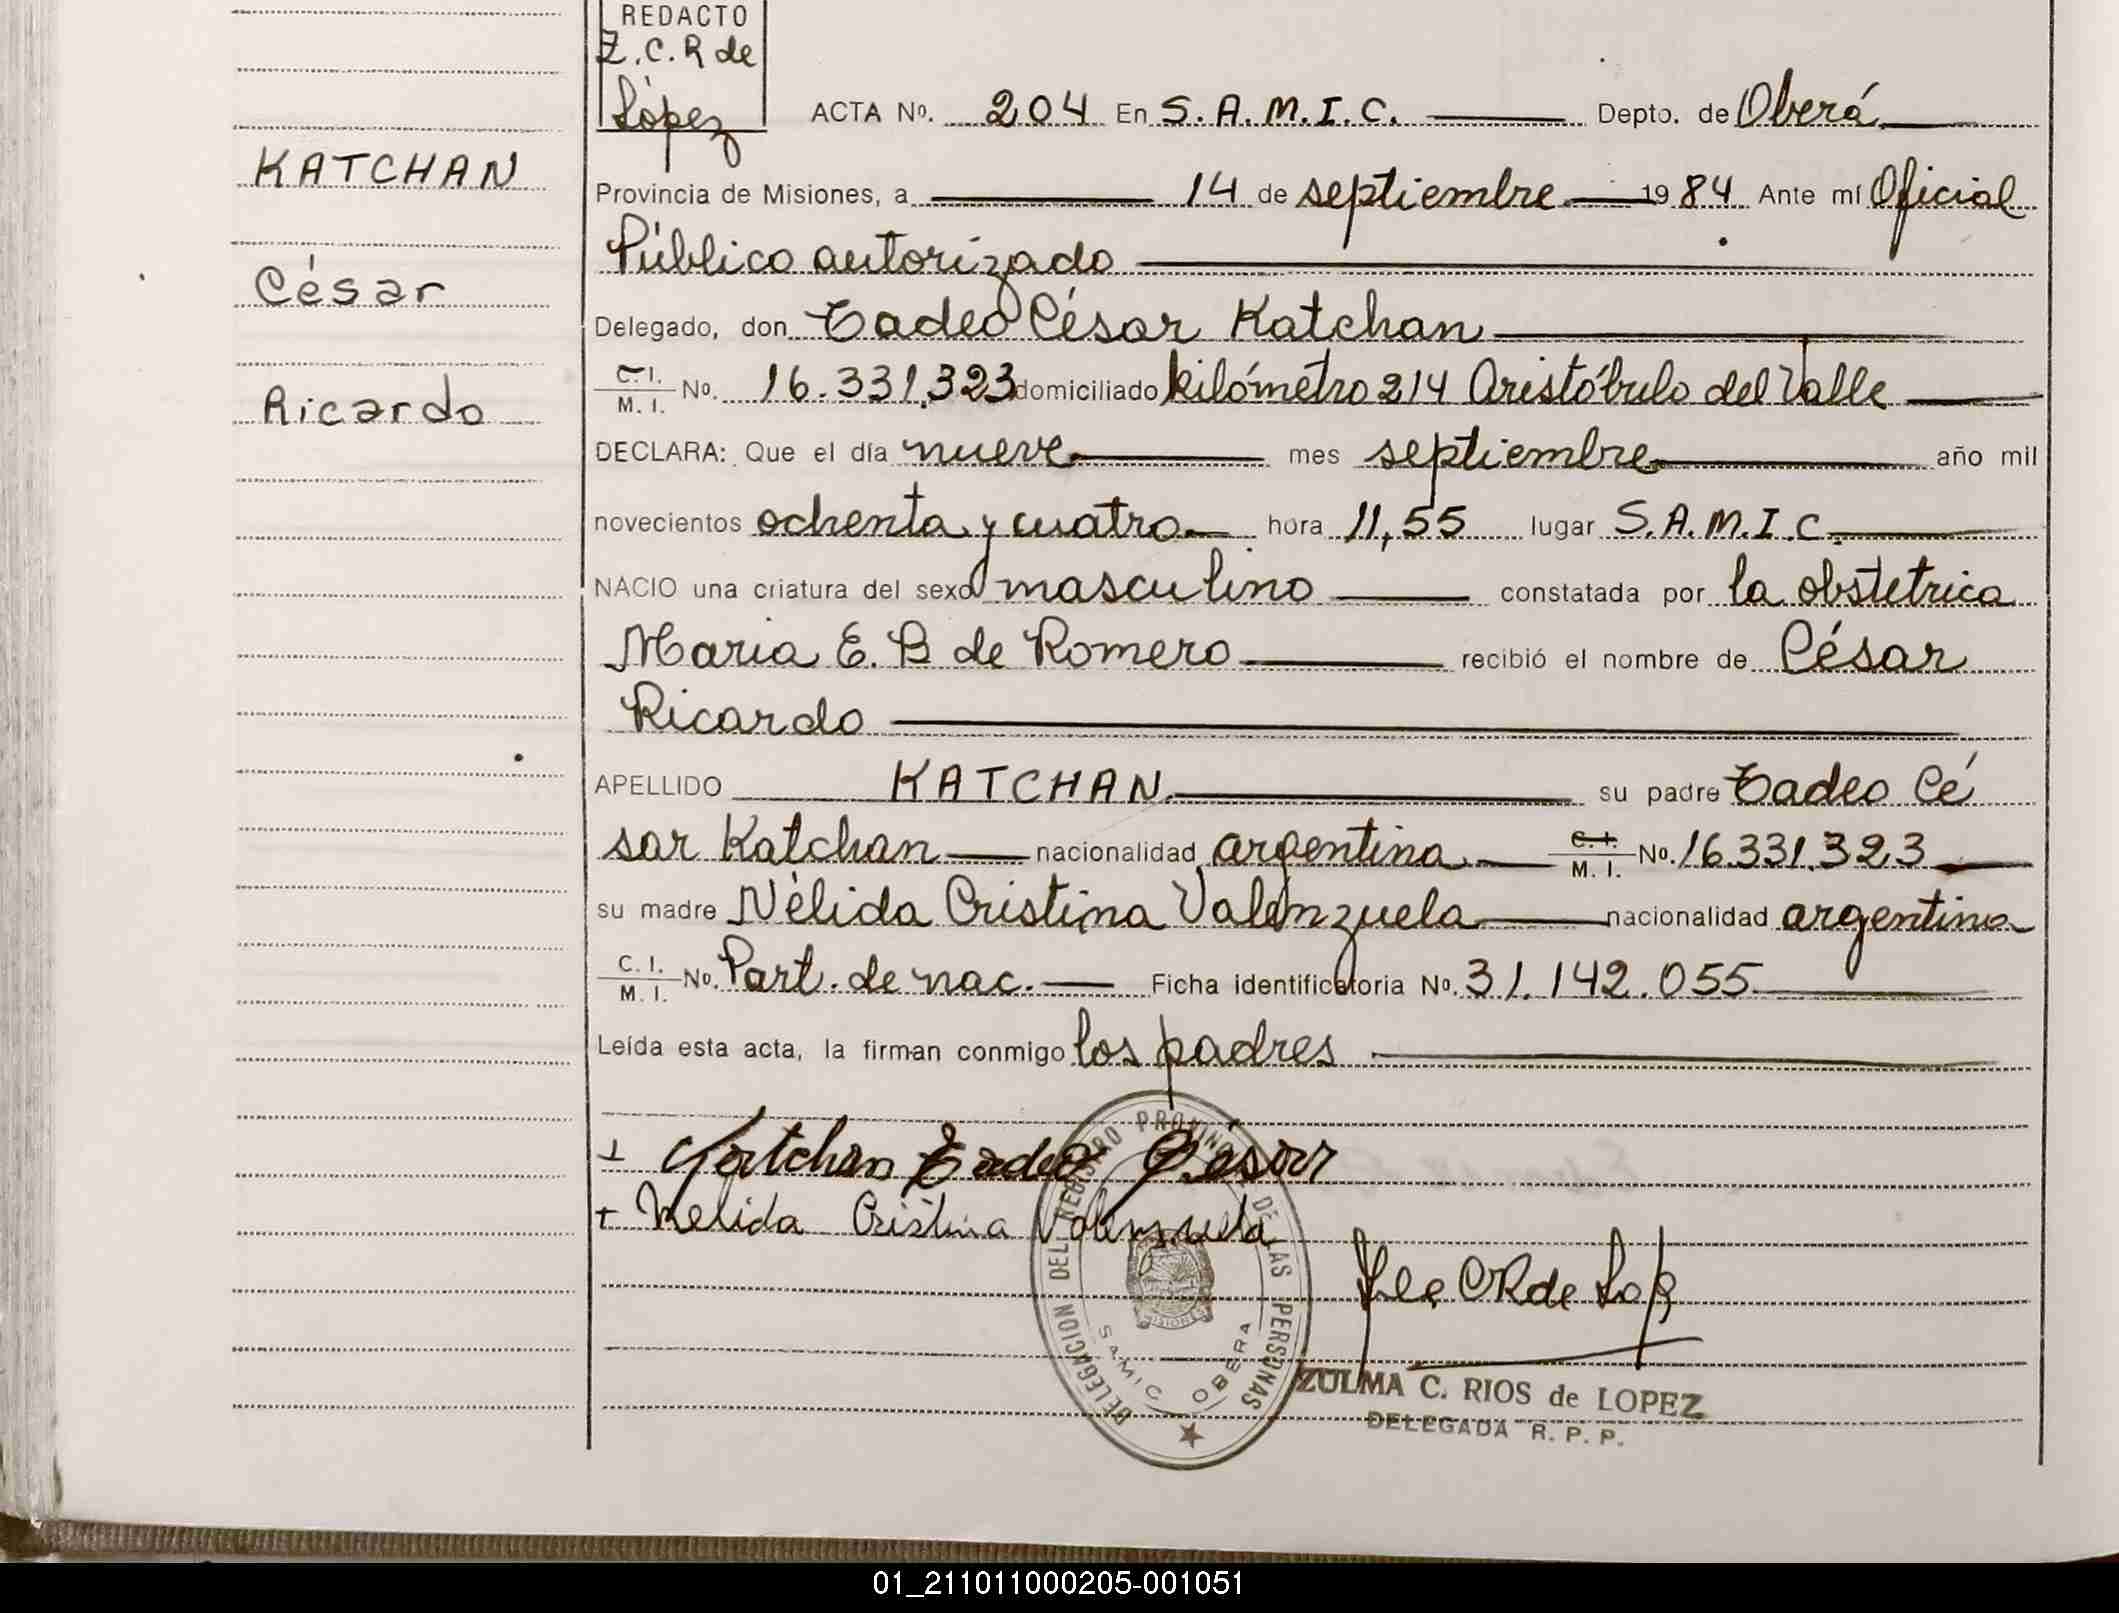 REDACTO
Z. C. R de
López
ACTA Nº. 204 En S. A. M. I. C. Depto. de Oberá
KATCHAN
Provincia de Misiones, a 14 de septiembre 1984 Ante mí Oficial
Público autorizado
César
Delegado, don Tadeo César Katchan
Ricardo
C. I. M. I. Nº. 16.331.323 domiciliado kilómetro 214 Aristóbulo del Valle
DECLARA: Que el día nueve mes septiembre año mil
novecientos ochenta y cuatro hora 11,55 lugar S. A. M. I. C.
NACIO una criatura del sexo masculino constatada por la obstetrica
Maria E. B de Romero recibió el nombre de César
Ricardo
APELLIDO KATCHAN su padre Tadeo Cé
sar Katchan nacionalidad argentina C. I. M. I. Nº. 16.331.323
su madre Nélida Cristina Valenzuela nacionalidad argentina
C. I. M. I. Nº. Part. de nac. Ficha identificatoria Nº. 31.142.055
Leída esta acta, la firman conmigo los padres
+ Katchan Tadeo César
+ Nelida Cristina Valenzuela
DELEGACION DEL REGISTRO PROVINCIAL DE LAS PERSONAS
MISIONES
SAMIC OBERA
ZULMA C. RIOS de LOPEZ
DELEGADA R. P. P.
01_211011000205-001051